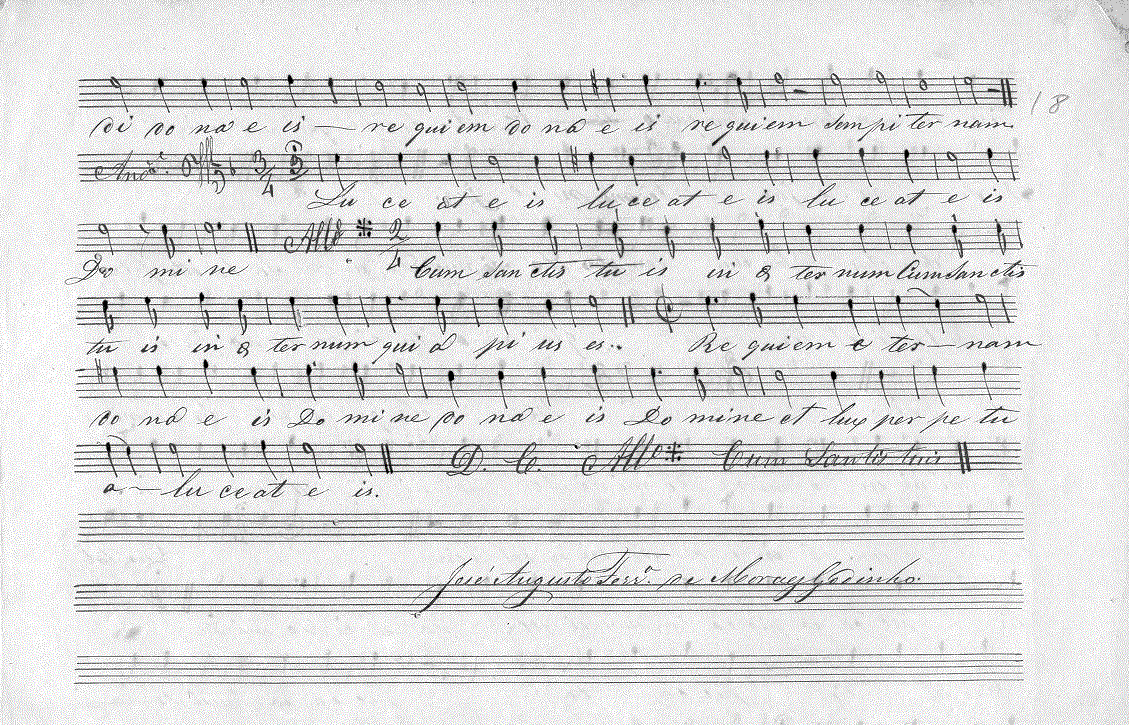 di do na e is — re qui em do na e is re quiem sem pi ter nam
18
And.e 3/4 3
Lu ce at e is lu ce at e is lu ce at e is
Do mi ne
All.o ※ 2/4
Cum Sanctis tu is in æ ter num Cum Sanctis
tu is in æ ter num qui a pi us es.. Re quiem e ter — nam
do na e is Do mi ne do na e is Do mine et lux per pe tu
a — lu ce at e is.
D. C. All.o ※ Cum Santis tuis
José Augusto Ferr.a de Moraes Godinho.